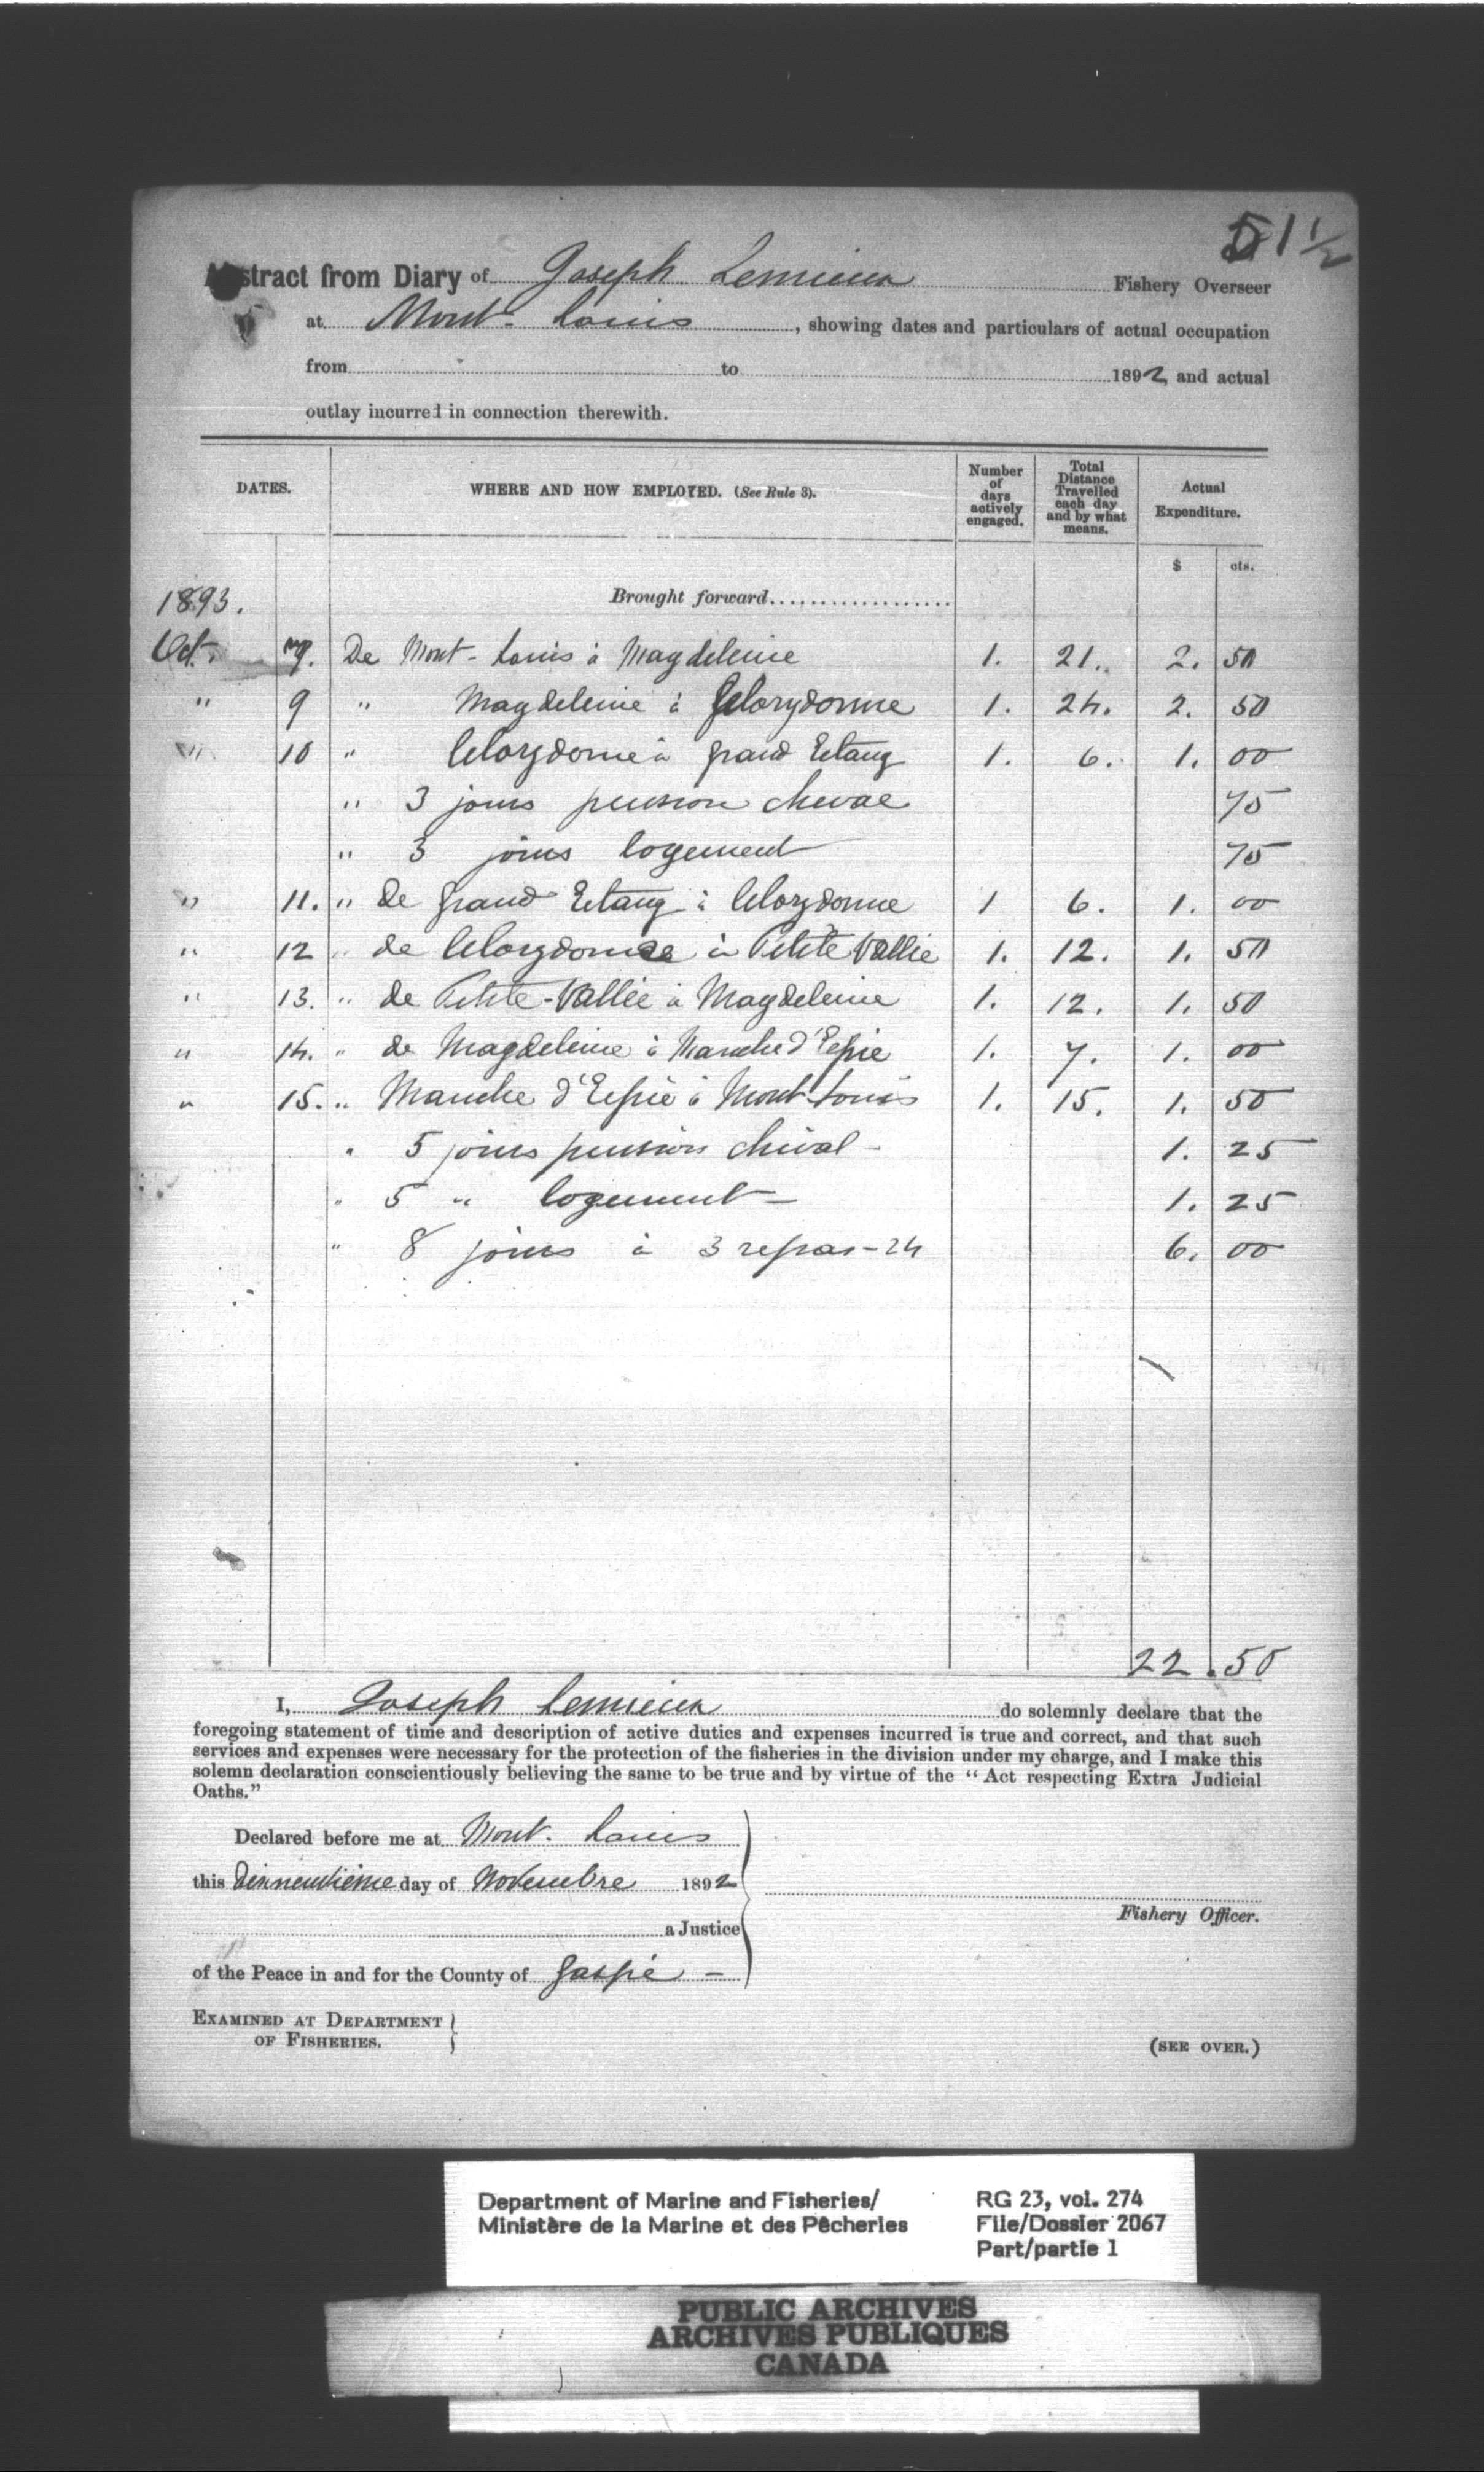 51 1/2
Abstract from Diary of Joseph Lemieux Fishery Overseer
at Mont-Louis, showing dates and particulars of actual occupation
from to 1892 and actual
outlay incurred in connection therewith.
DATES. WHERE AND HOW EMPLOYED. (See Rule 3). Number of days actively engaged. Total Distance Travelled each day and by what means. Actual Expenditure.
$ cts.
1893. Brought forward
Oct. 7. De Mont-Louis à Magdeleine 1. 21. 2. 50
" 9 " Magdeleine à Clorydorme 1. 24. 2. 50
" 10 " Clorydorme à grand Etang 1. 6. 1. 00
" 3 jours pension cheval 75
" 3 jours logement 75
" 11. " de grand Etang à Clorydorme 1 6. 1. 00
" 12 " de Clorydorme à Petite Vallée 1. 12. 1. 50
" 13. " de Petite-Vallée à Magdeleine 1. 12. 1. 50
" 14. " de Magdeleine à Manche d'Epée 1. 7. 1. 00
" 15. " Manche d'Epée à Mont Louis 1. 15. 1. 50
" 5 jours pension cheval - 1. 25
" 5 " logement - 1. 25
" 8 jours à 3 repas - 24 6. 00
22.50
I, Joseph Lemieux do solemnly declare that the
foregoing statement of time and description of active duties and expenses incurred is true and correct, and that such
services and expenses were necessary for the protection of the fisheries in the division under my charge, and I make this
solemn declaration conscientiously believing the same to be true and by virtue of the "Act respecting Extra Judicial
Oaths."
Declared before me at Mont. Louis
this Dixneuvième day of Novembre 1892
Fishery Officer.
a Justice
of the Peace in and for the County of Gaspé -
EXAMINED AT DEPARTMENT
OF FISHERIES.
(SEE OVER.)
Department of Marine and Fisheries/ RG 23, vol. 274
Ministère de la Marine et des Pêcheries File/Dossier 2067
Part/partie 1
PUBLIC ARCHIVES
ARCHIVES PUBLIQUES
CANADA